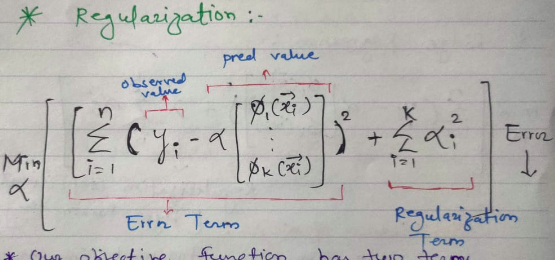 * Regularization :-
pred value
observed value
Min α [ [ n Σ i=1 ( yi - α [ φ1(x⃗i) ⋮ φK(x⃗i) ] )² + K Σ i=1 αi² ] Error ↓
Error Term
Regularization Term
* Our objective function has two terms